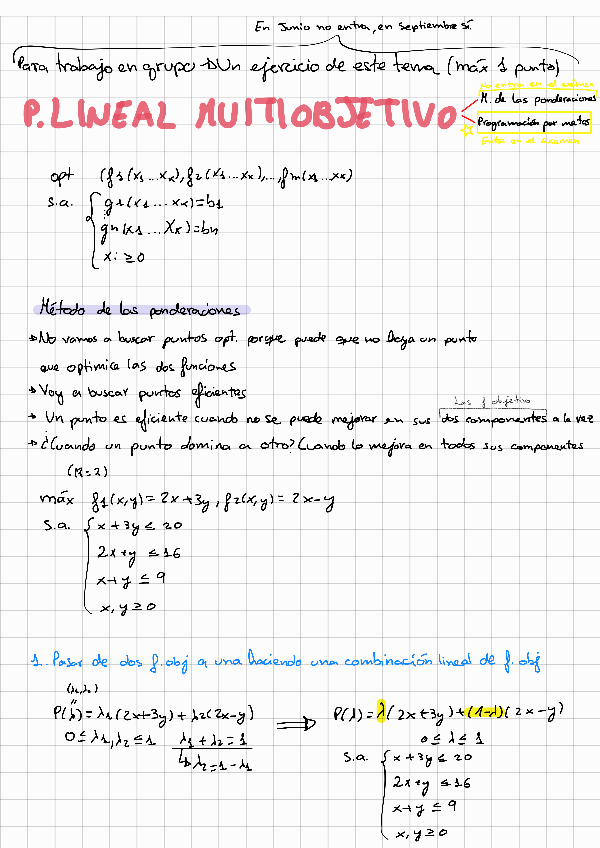 En Junio no entra, en Septiembre sí.
Para trabajo en grupo → Un ejercicio de este tema (máx 1 punto)
No entra en el examen
P. LINEAL MULTIOBJETIVO
M. de las ponderaciones
Programación por metas
Entra en el examen
opt (f1(x1...xk), f2(x1...xk),..., fm(x1...xk)
s.a. { g1(x1...xk)=b1
gn(x1...xk)=bn
xi ≥ 0
Método de las ponderaciones
→ No vamos a buscar puntos opt. porque puede que no haya un punto
que optimice las dos funciones
→ Voy a buscar puntos eficientes
Las f objetivo
→ Un punto es eficiente cuando no se puede mejorar en sus dos componentes a la vez
→ ¿Cuando un punto domina a otro? Cuando lo mejora en todos sus componentes
(k=2)
máx f1(x,y) = 2x+3y, f2(x,y) = 2x-y
s.a. { x+3y ≤ 20
2x+y ≤ 16
x+y ≤ 9
x, y ≥ 0
1. Pasar de dos f.obj a una haciendo una combinación lineal de f. obj
(λ1,λ2)
"
P(λ) = λ1(2x+3y) + λ2(2x-y) ⟹ P(λ) = λ(2x+3y) + (1-λ)(2x-y)
0 ≤ λ1, λ2 ≤ 1 λ1 + λ2 = 1
↳ λ2 = 1 - λ1
0 ≤ λ ≤ 1
s.a. { x+3y ≤ 20
2x+y ≤ 16
x+y ≤ 9
x, y ≥ 0